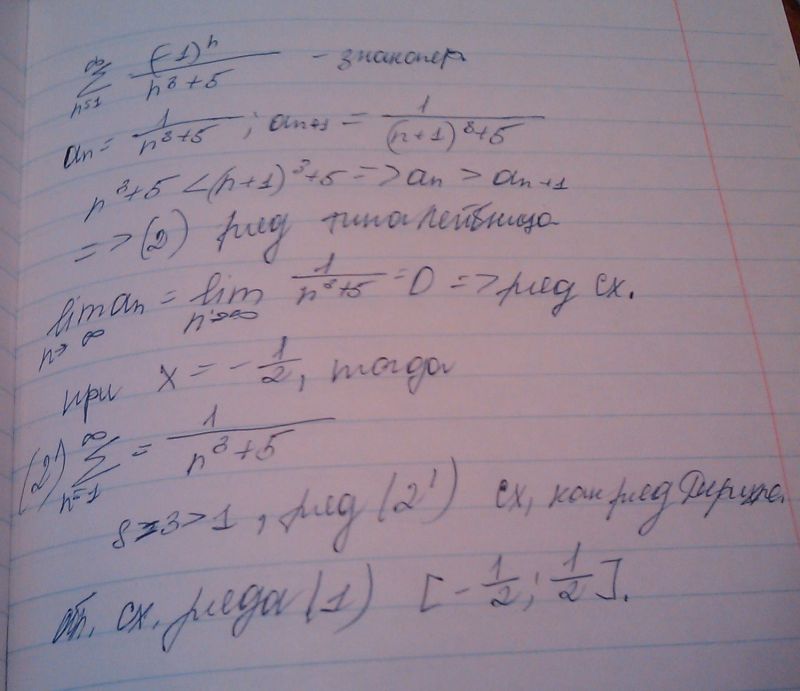 ∑_{n=1}^{∞} (-1)^n / (n^3+5) - знакопер
a_n = 1/(n^3+5) ; a_{n+1} = 1/((n+1)^3+5)
n^3+5 < (n+1)^3+5 => a_n > a_{n+1}
=> (2) ряд типа Лейбница
lim_{n→∞} a_n = lim_{n→∞} 1/(n^3+5) = 0 => ряд сх.
при x = -1/2, тогда
(2') ∑_{n=1}^{∞} = 1/(n^3+5)
3>1, ряд (2') сх, как ряд Дирихле.
сх. ряда (1) [-1/2; 1/2].